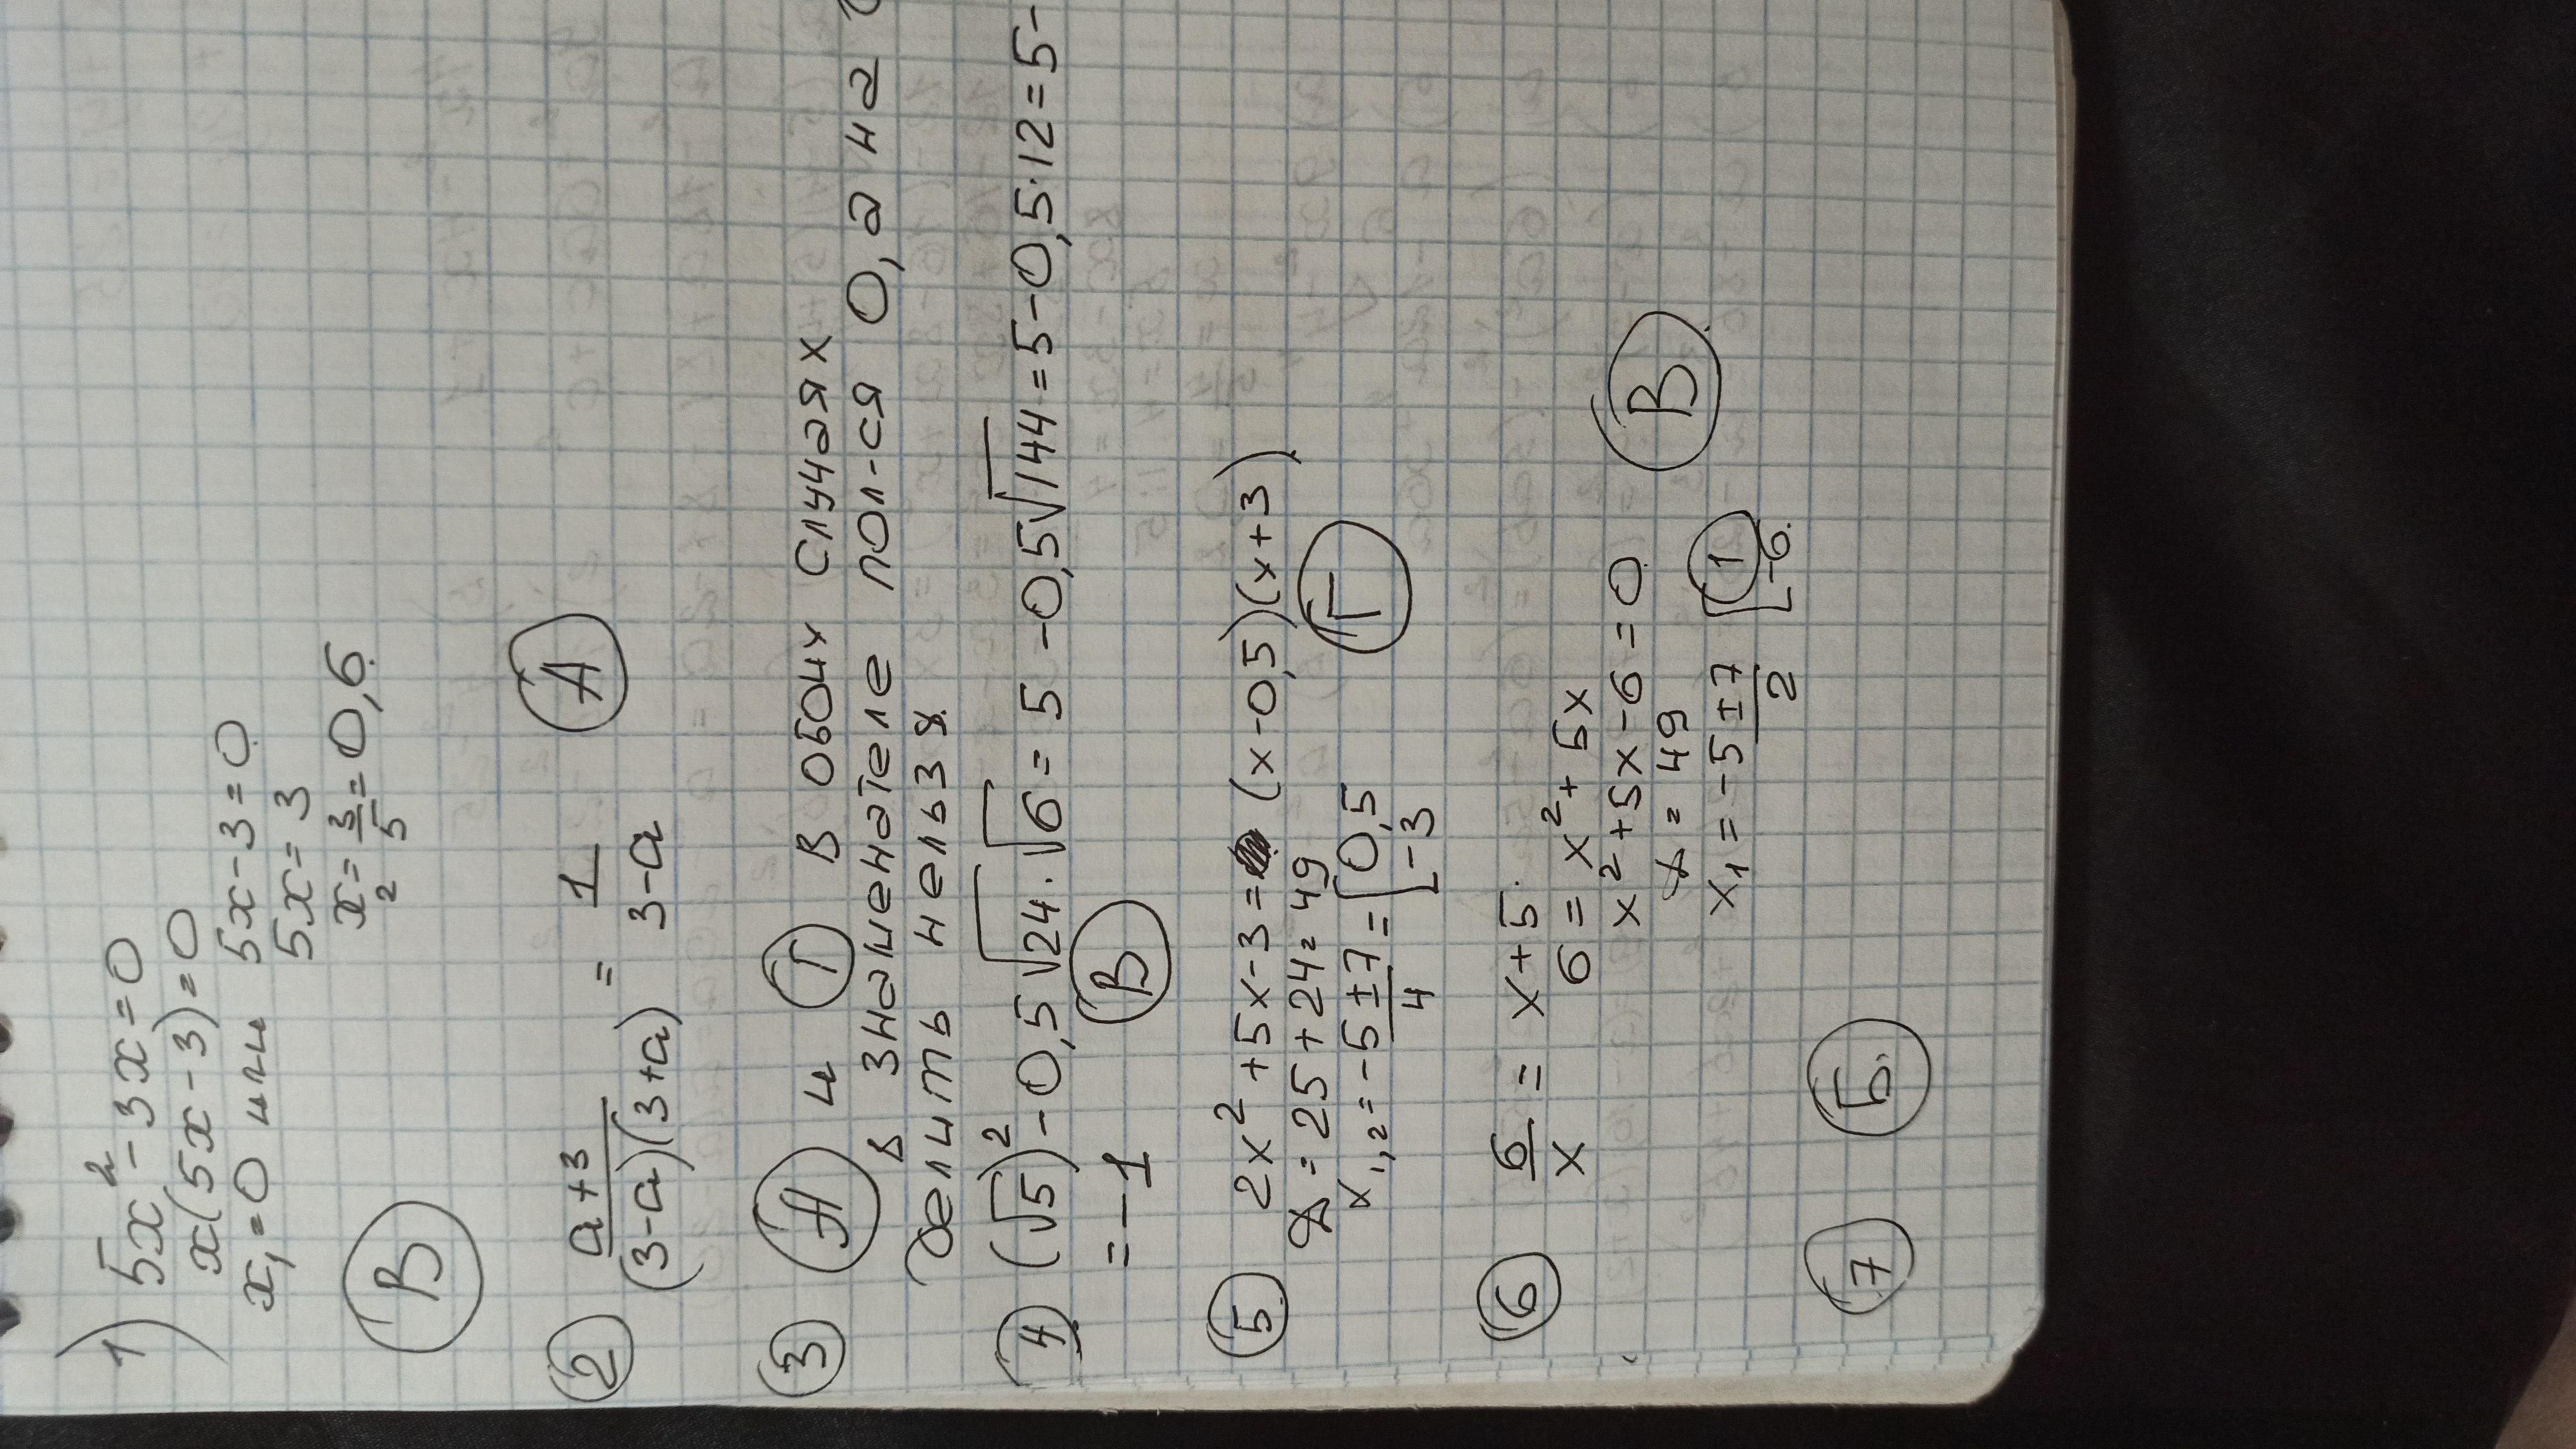 1) 5x² - 3x = 0
x(5x - 3) = 0
x₁ = 0 или 5x - 3 = 0
5x = 3
x₂ = 3/5 = 0,6.
В
2 (a+3)/((3-a)(3+a)) = 1/(3-a) А
3 А и Г В обоих случаях
в знаменателе пол-ся 0, а на
делить нельзя.
4 (√5)² - 0,5√24·√6 = 5 - 0,5√144 = 5 - 0,5·12 = 5 -
= -1 В
5 2x² + 5x - 3 = (x - 0,5)(x + 3)
D = 25 + 24 = 49
x₁,₂ = (-5 ± 7)/4 = [0,5 -3 Г
6 6/x = x + 5.
6 = x² + 5x
x² + 5x - 6 = 0
D = 49
x₁ = (-5 ± 7)/2 [1 -6. В
7 Б.